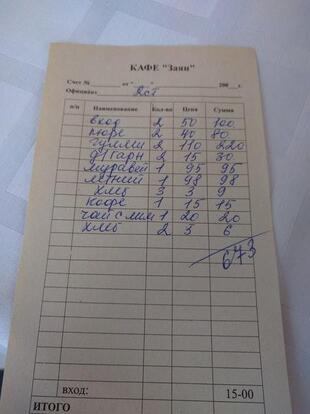 КАФЕ "Заян"
Счет № от " " 200 г.
Официант 2ст
п/п Наименование Кол-во Цена Сумма
вход 2 50 100
пюре 2 40 80
гуляш 2 110 220
д/гарн 2 15 30
муравей 1 95 95
летний 1 98 98
хлеб 3 3 9
кофе 1 15 15
чай с лим 1 20 20
хлеб 2 3 6
673
вход: 15-00
ИТОГО